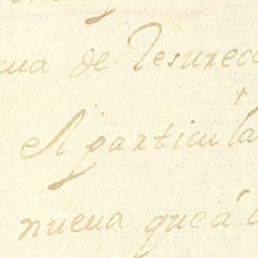 cua de Resurecc
el particula
nueua que á